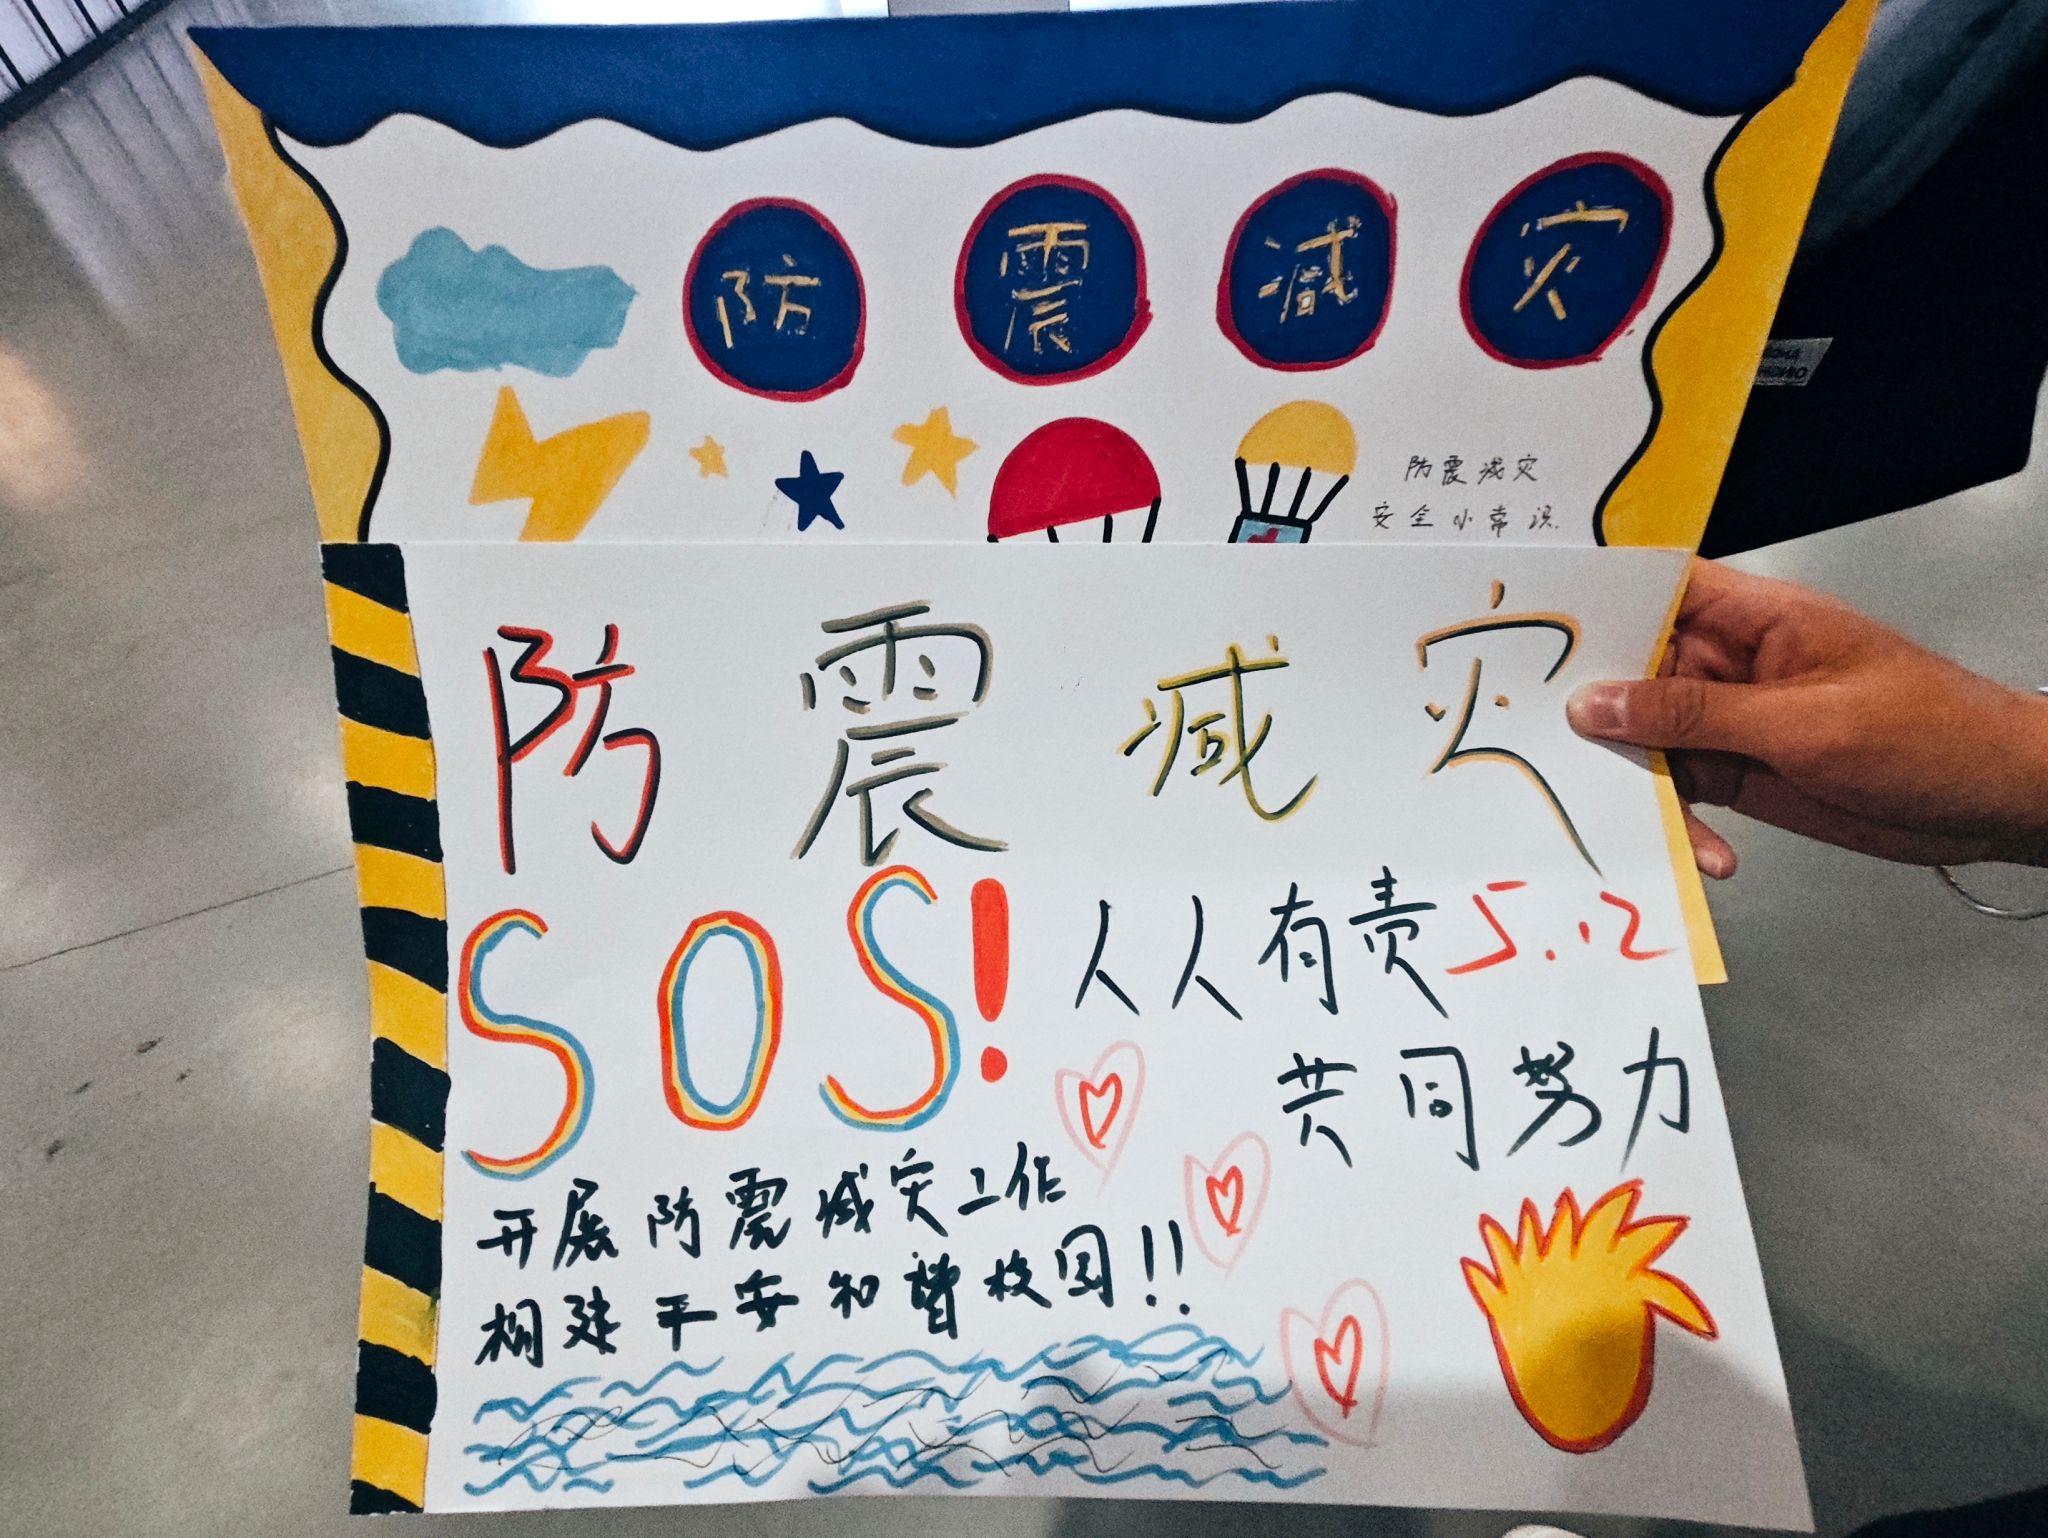 防震减灾
防震减灾
安全小常识
防震减灾
SOS!
人人有责 5.12
共同努力
开展防震减灾工作
构建平安和谐校园!!